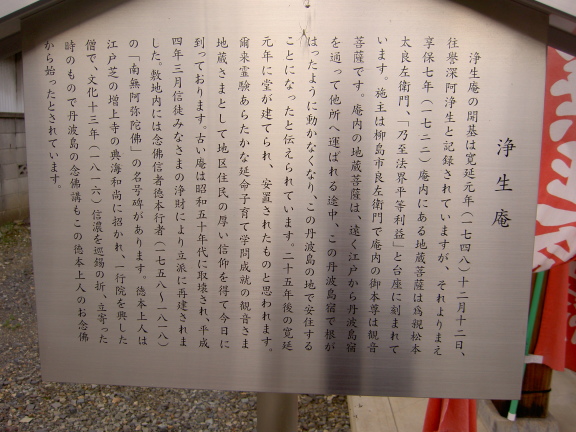 浄生庵
浄生庵の開基は寛延元年（一七四八）十二月十二日、
往誉深阿浄生と記録されていますが、それよりまえ
享保七年（一七二二）庵内にある地蔵菩薩は爲親松本
太良左衛門、「乃至法界平等利益」と台座に刻まれて
います。施主は柳島市良左衛門で庵内の御本尊は観音
菩薩です。庵内の地蔵菩薩は、遠く江戸から丹波島宿
を通って他所へ運ばれる途中、この丹波島宿で根が
はったように動かなくなり、この丹波島の地で安住する
ことになったと伝えられています。二十五年後の寛延
元年に堂が建てられ、安置されたものと思われます。
爾来霊験あらたかな延命子育て学問成就の観音さま
地蔵さまとして地区住民の厚い信仰を得て今日に
到っております。古い庵は昭和五十年代に取壊され、平成
四年三月信徒みなさまの浄財により立派に再建されま
した。敷地内には念佛信者徳本行者（一七五八～一八一八）
の「南無阿弥陀佛」の名号碑があります。徳本上人は
江戸芝の増上寺の典海和尚に招かれ、一行院を興した
僧で、文化十三年（一八一六）信濃を巡錫の折、立寄った
時のもので丹波島の念佛講もこの徳本上人のお念佛
から始ったとされています。